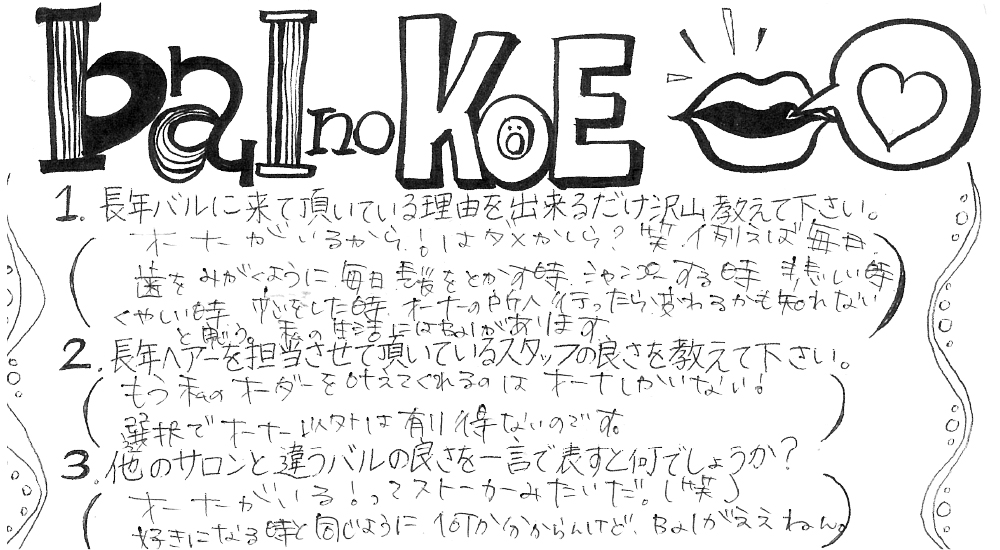 bal no KOE
1. 長年バルに来て頂いている理由を出来るだけ沢山教えて下さい。
オーナーがいるから!はダメかしら?笑 例えば毎日
歯をみがくように、毎日髪をとかす時 シャンプーする時 悲しい時
くやしい時 恋をした時 オーナーの所へ行ったら変わるかも知れない
と思う。私の生活にはBalがあります。
2. 長年ヘアーを担当させて頂いているスタッフの良さを教えて下さい。
もう私のオーダーを叶えてくれるのはオーナーしかいない!
選択でオーナー以外は有り得ないのです。
3. 他のサロンと違うバルの良さを一言で表すと何でしょうか?
オーナーがいる!ってストーカーみたいだ。(笑)
好きになる時と同じように、何か分からんけど、Balがええねん。